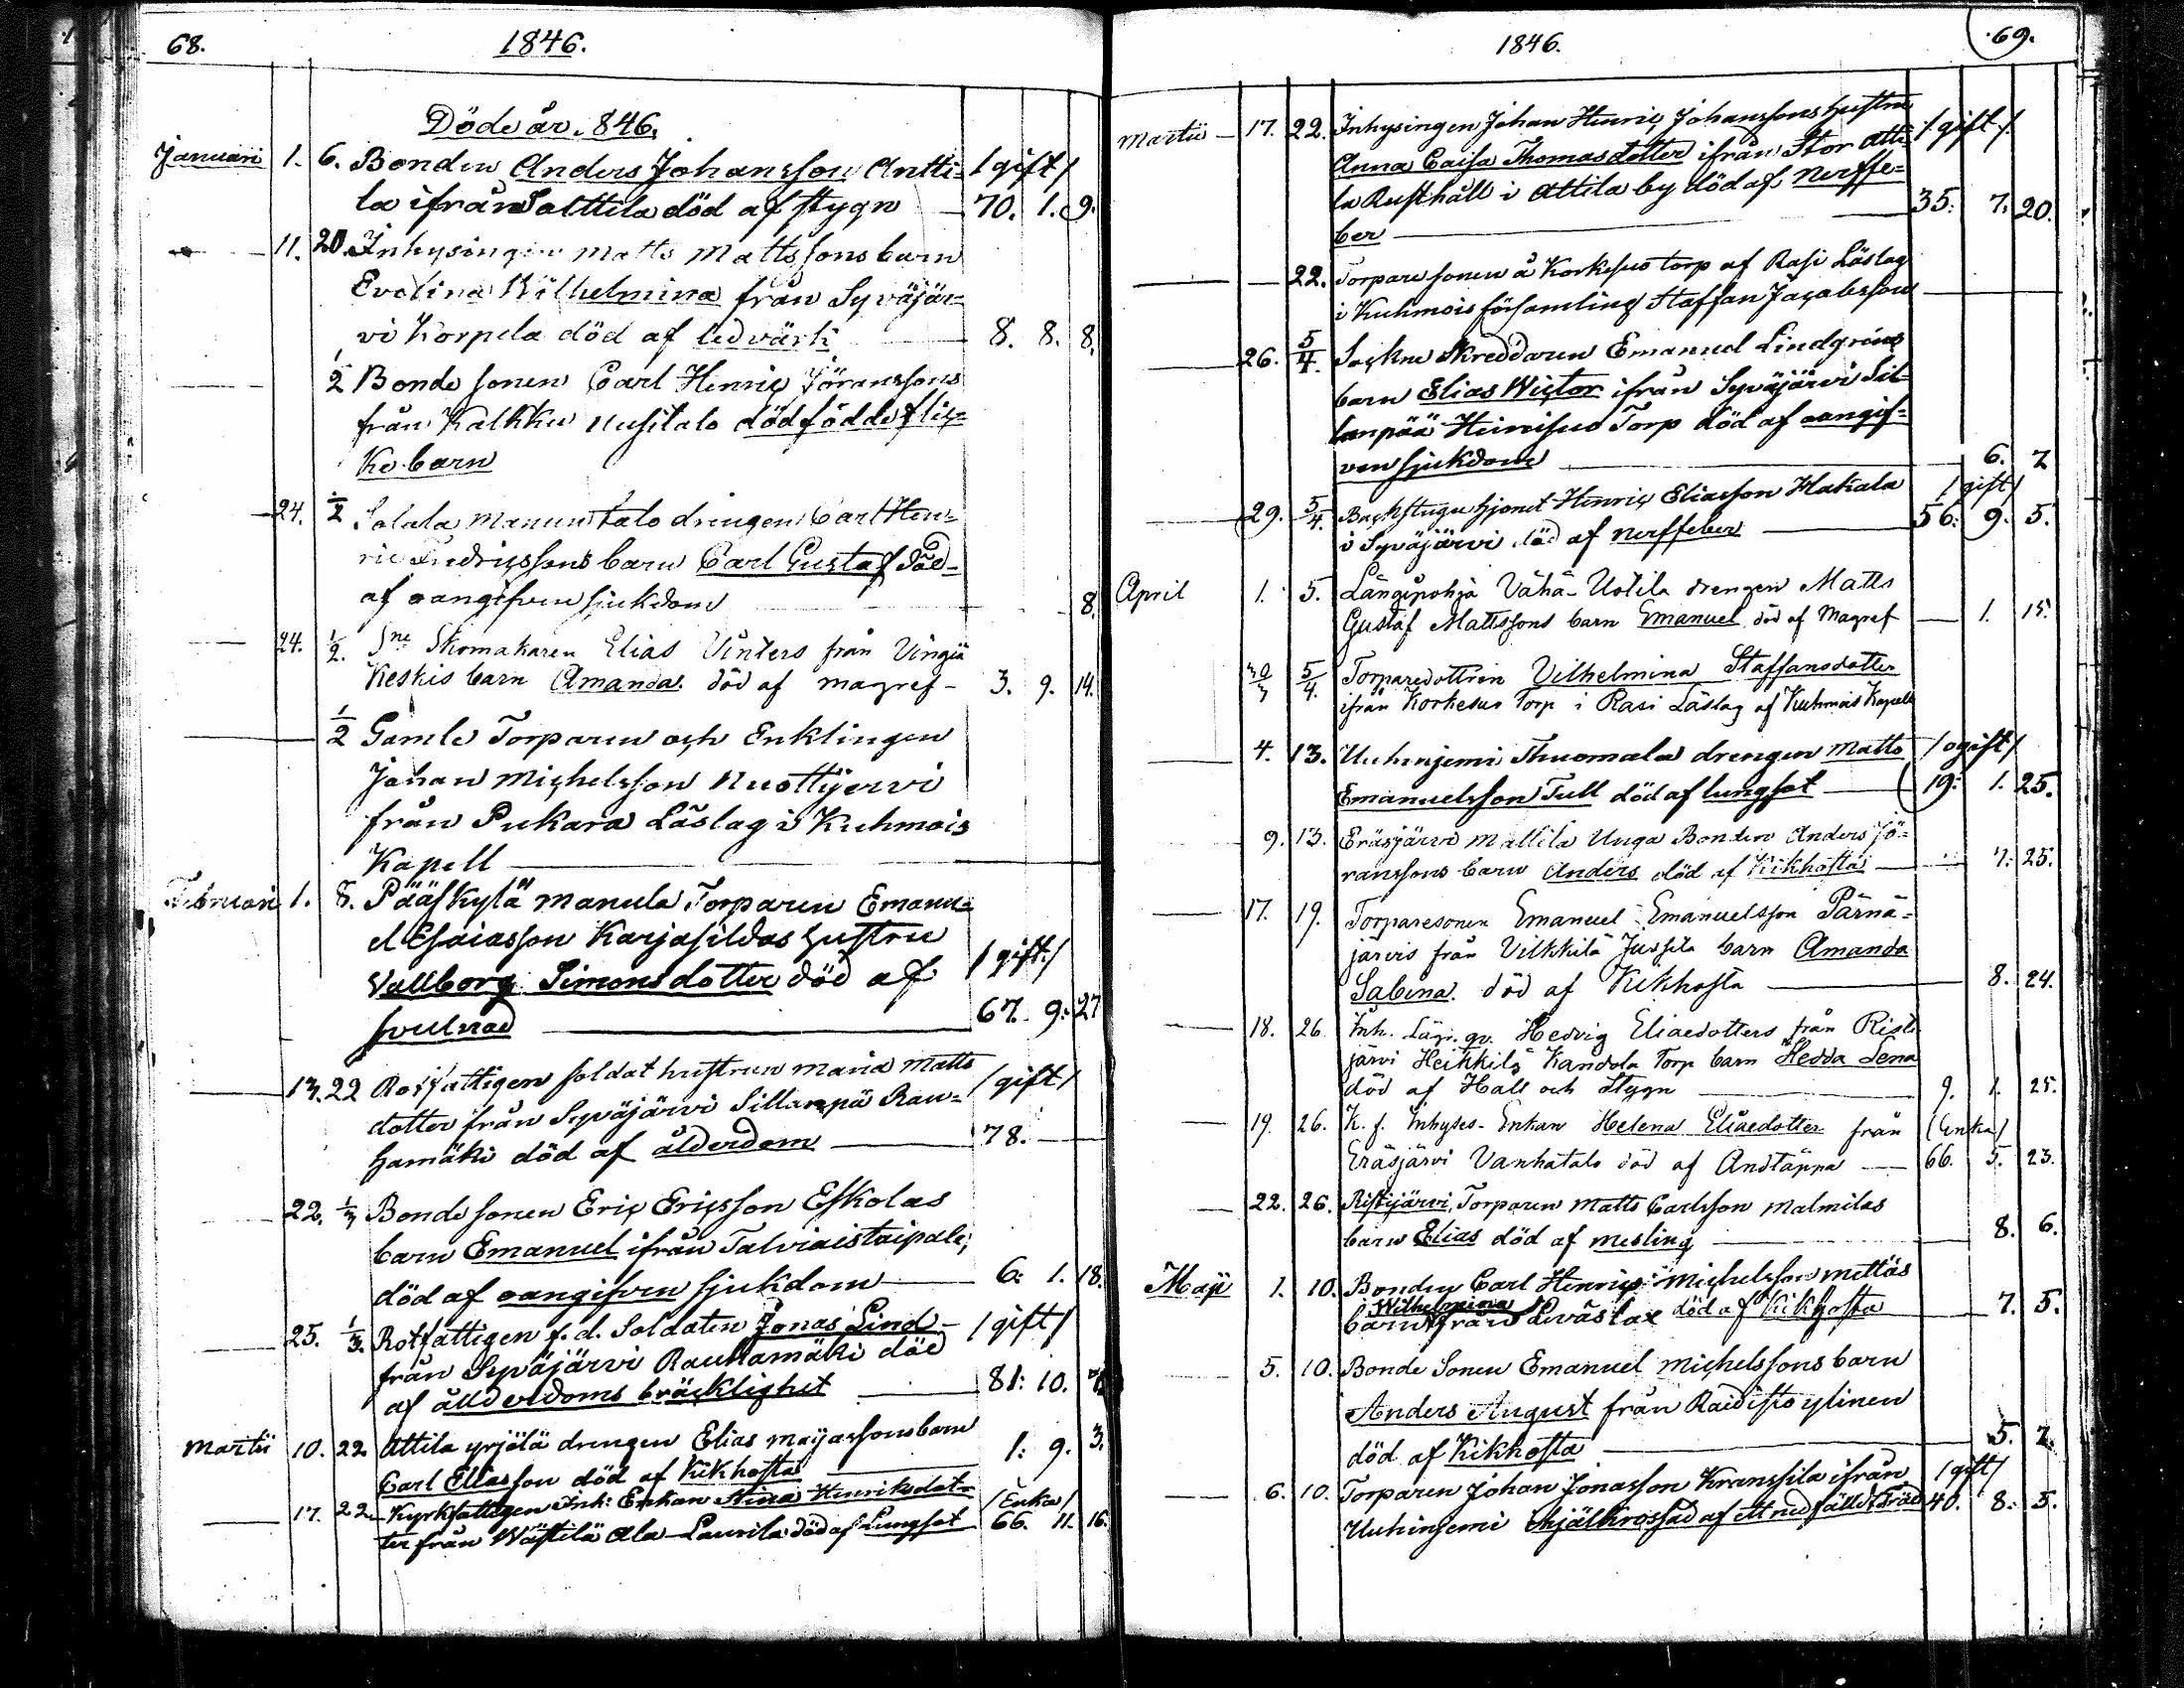 68.
1846.
Döde år. 846.
Januari 1. 6. Bonden Anders Johansson Antti- /gift/
la ifrån Salttila död af stygn — 70. 1. 9.
— 11. 20. Inhysingen Matts Mattssons barn
Evelina Wilhelmina från Syväjär-
vi Korpela död af ledvärk 8. 8. 8.
— 1/2 Bonde sonen Carl Henric Jöranssons
från Kalkku Uusitalo dödfödde flic-
ke barn
— 24. 1/2 Solala Manuntalo drengen Carl Hen-
ric Fredricssons barn Carl Gustaf död
af oangifven sjukdom 8.
— 24. 1/2. Sne Skomakaren Elias Vinters från Vingiä
Keskis barn Amanda. död af magref - 3. 9. 14.
— 1/2 Gamle Torparen och Enklingen
Johan Michelsson Nuottijervi
från Pukara Läslag i Kuhmois
Kapell —
Februari 1. 8. Pääskylä Manula Torparen Emanu-
el Esaiasson Karjasildas hustru
Vallborg Simonsdotter död af /gift/
svulnad — 67. 9. 27
— 13. 22 Rotfattigen soldat hustrun Maria Matts
dotter från Syväjärvi Sillanpä Rau- /gift/
hamäki död af ålderdom — 78. —
22. 1/3 Bonde sonen Eric Ericsson Eskolas
barn Emanuel ifrån Talviaistaipale,
död af oangifven sjukdom — 6. 1. 18.
— 25. 1/3. Rotfattigen f.d. Soldaten Jonas Lind- /gift/
från Syväjärvi Rauhamäki död
af ållderdoms bräcklighet — 81: 10.
Martii 10. 22. Attila Yrjölä drengen Elias Maijassons barn
Carl Eliasson död af Kikhosta 1: 9. 3.
— 17. 22. Kyrkfattigen Inh: Enkan Stina Henriksdot- /Enka/
ter från Wästilä Ala Laurila död af Lungsot 66. 11. 16.
1846.
69.
Martii — 17. 22. Inhysingen Johan Henric Johanssons hustru /gift/
Anna Caisa Thomasdotter ifrån Stor Atti-
la Rusthåll i Attila by död af Nerffe-
ber — 35: 7. 20.
— 22. Torpare sonen å Korkesuo torp af Rasi Läslag
i Kuhmois församling Staffan Jacobsson —
— 26. 5/4. Sockne Skreddaren Emanuel Lindgrens
barn Elias Wictor ifrån Syväjärvi Sil-
lanpää Heinisuo Torp död af oangif-
ven sjukdom — 6. 7
— 29. 5/4. Backstugu hjonet Henric Eliasson Hakala /gift/
i Syväjärvi död af Nerffeber — 56: 9. 5.
April 1. 5. Längipohja Vähä-Uotila drengen Matts
Gustaf Mattssons barn Emanuel död af Magref — 1. 15.
30/3 5/4. Torparedottren Vilhelmina Staffansdotter
ifrån Korkesuo Torp i Rasi Läslag af Kuhmois Kapell
— 4. 13. Uuhinjemi Thuomala drengen Matts /ogift/
Emanuelsson Tull död af lungsot — 19: 1. 25.
9. 13. Eräsjärvi Mattila Unga Bonden Anders Jö-
ranssons barn Anders död af Kikhosta — 7. 25.
— 17. 19. Torparesonen Emanuel Emanuelsson Pärnä-
järvis från Vilkkilä Jussila barn Amanda
Sabina. död af Kikhosta — 8. 24.
— 18. 26. Inh. Läg. qv. Hedvig Eliaedotters från Risti
järvi Heikkilä Kandola Torp barn Hedda Lena
död af Håll och Stygn — 9. 1. 25.
— 19. 26. K. f. Inhyses-Enkan Helena Eliaedotter från (Enka)
Eräsjärvi Vanhatalo död af Andtäppa — 66. 5. 23.
— 22. 26. Ristijärvi, Torparen Matts Carlsson Malmilas
barn Elias död af mesling — 8. 6.
Maji 1. 10. Bonden Carl Henric Michelsson Mettäs
Wilhelmina
barn från Leväslax död af Kikhosta — 7. 5.
— 5. 10. Bonde Sonen Emanuel Michelssons barn
Anders August från Raidisto Ylinen
död af Kikhosta — 5. 7.
— 6. 10. Torparen Johan Jonasson Kranssila ifrån /gift/
Uuhinjemi ihjälkrossad af ett nedfälldt Träd 40. 8. 5.